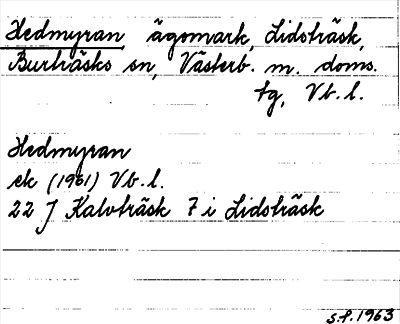 Hedmyran ägomark, Lidsträsk,
Burträsks sn, Västerb. m. doms.
tg, Vb. l.
Hedmyran
ek (1961) Vb. l.
22 J Kalvträsk 7 i Lidsträsk
S.P. 1963